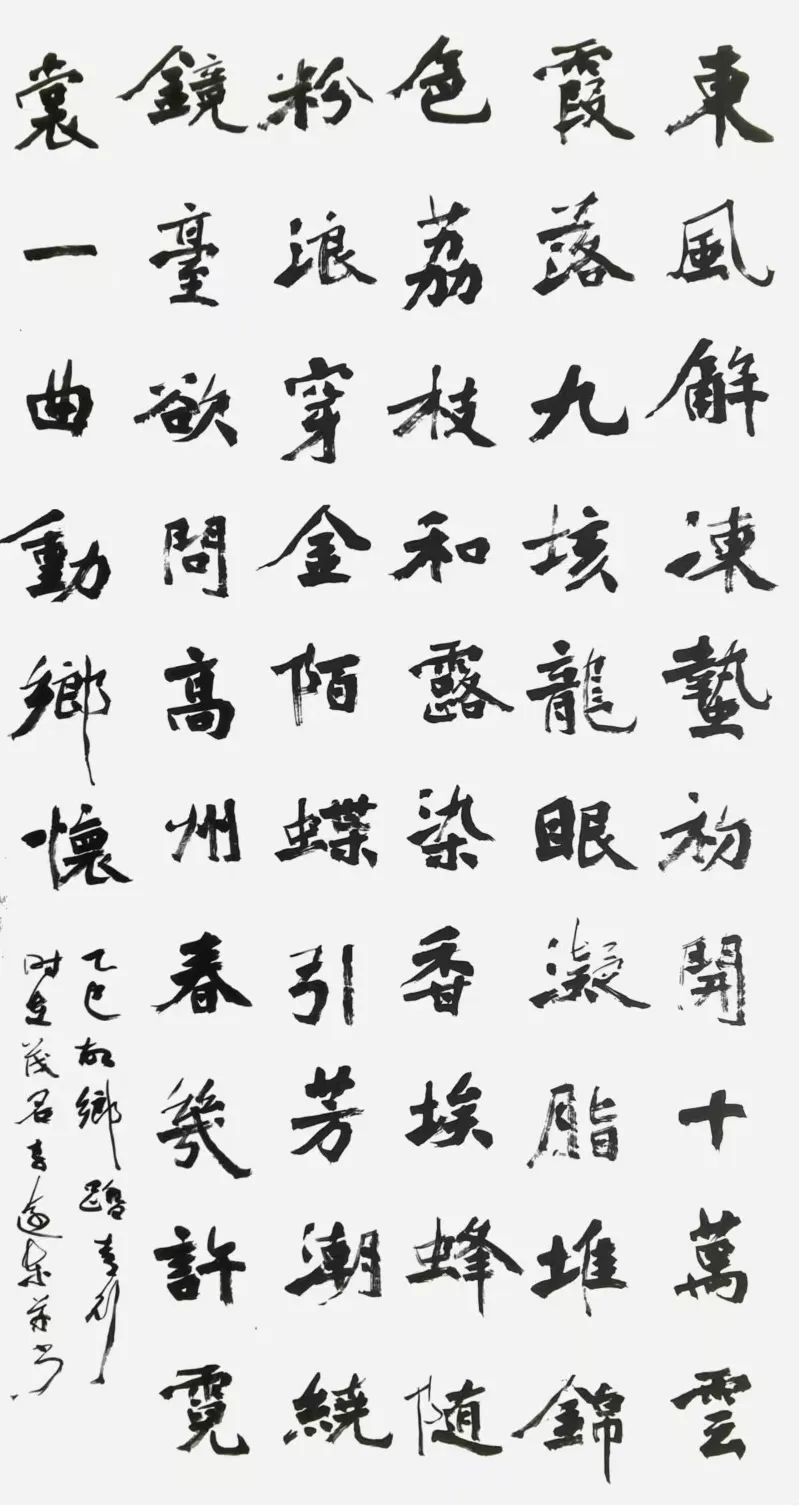 東風解凍蟄初開十萬雲
霞落九垓龍眼凝脂堆錦
色荔枝和露染香埃蜂隨
粉浪穿金陌蝶引芳潮繞
鏡臺欲問高州春幾許霓
裳一曲動鄉懷
乙巳故鄉踏青行
时逢茂名